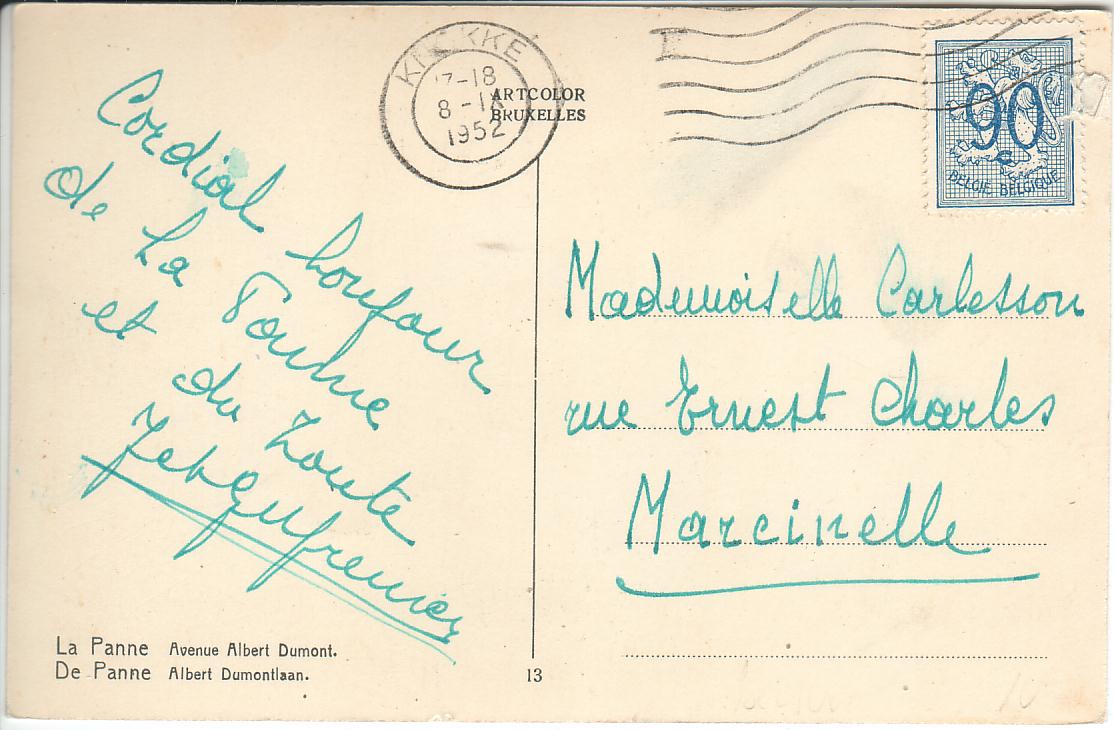 KNOKKE
17-18
8-IX
1952
ARTCOLOR
BRUXELLES
90
c
BELGIE BELGIQUE
Cordial bonjour
de La Panne
et du Zoute
Mademoiselle Carlesson
rue Ernest Charles
Marcinelle
La Panne Avenue Albert Dumont.
De Panne Albert Dumontlaan.
13